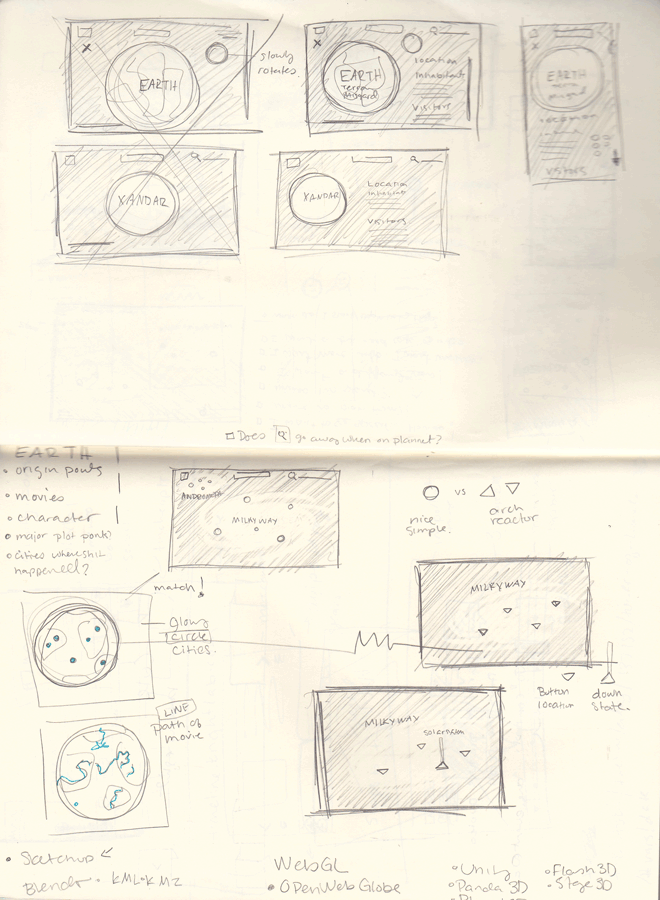 EARTH
slowly
rotates
EARTH
Terra
Midgard
Location
Inhabitants
Visitors
EARTH
Terra
Midgard
Location
Visitors
XANDAR
XANDAR
Location
Visitors
Does go away when on plannet?
EARTH
• origin points
• movies
• character
• major plot point?
• cities where shit
happened?
ANDROMEDA
MILKYWAY
VS
nice
simple.
arch
reactor
match!
glowy
circle
cities.
MILKYWAY
Button
location
down
State.
LINE
path of
movie
MILKYWAY
solarsystem
• Sketchup
Blender • KML • KMZ
WebGL
• OPenWebGlobe
• Unity
• Panda 3D
• Flash 3D
• Stage 3D